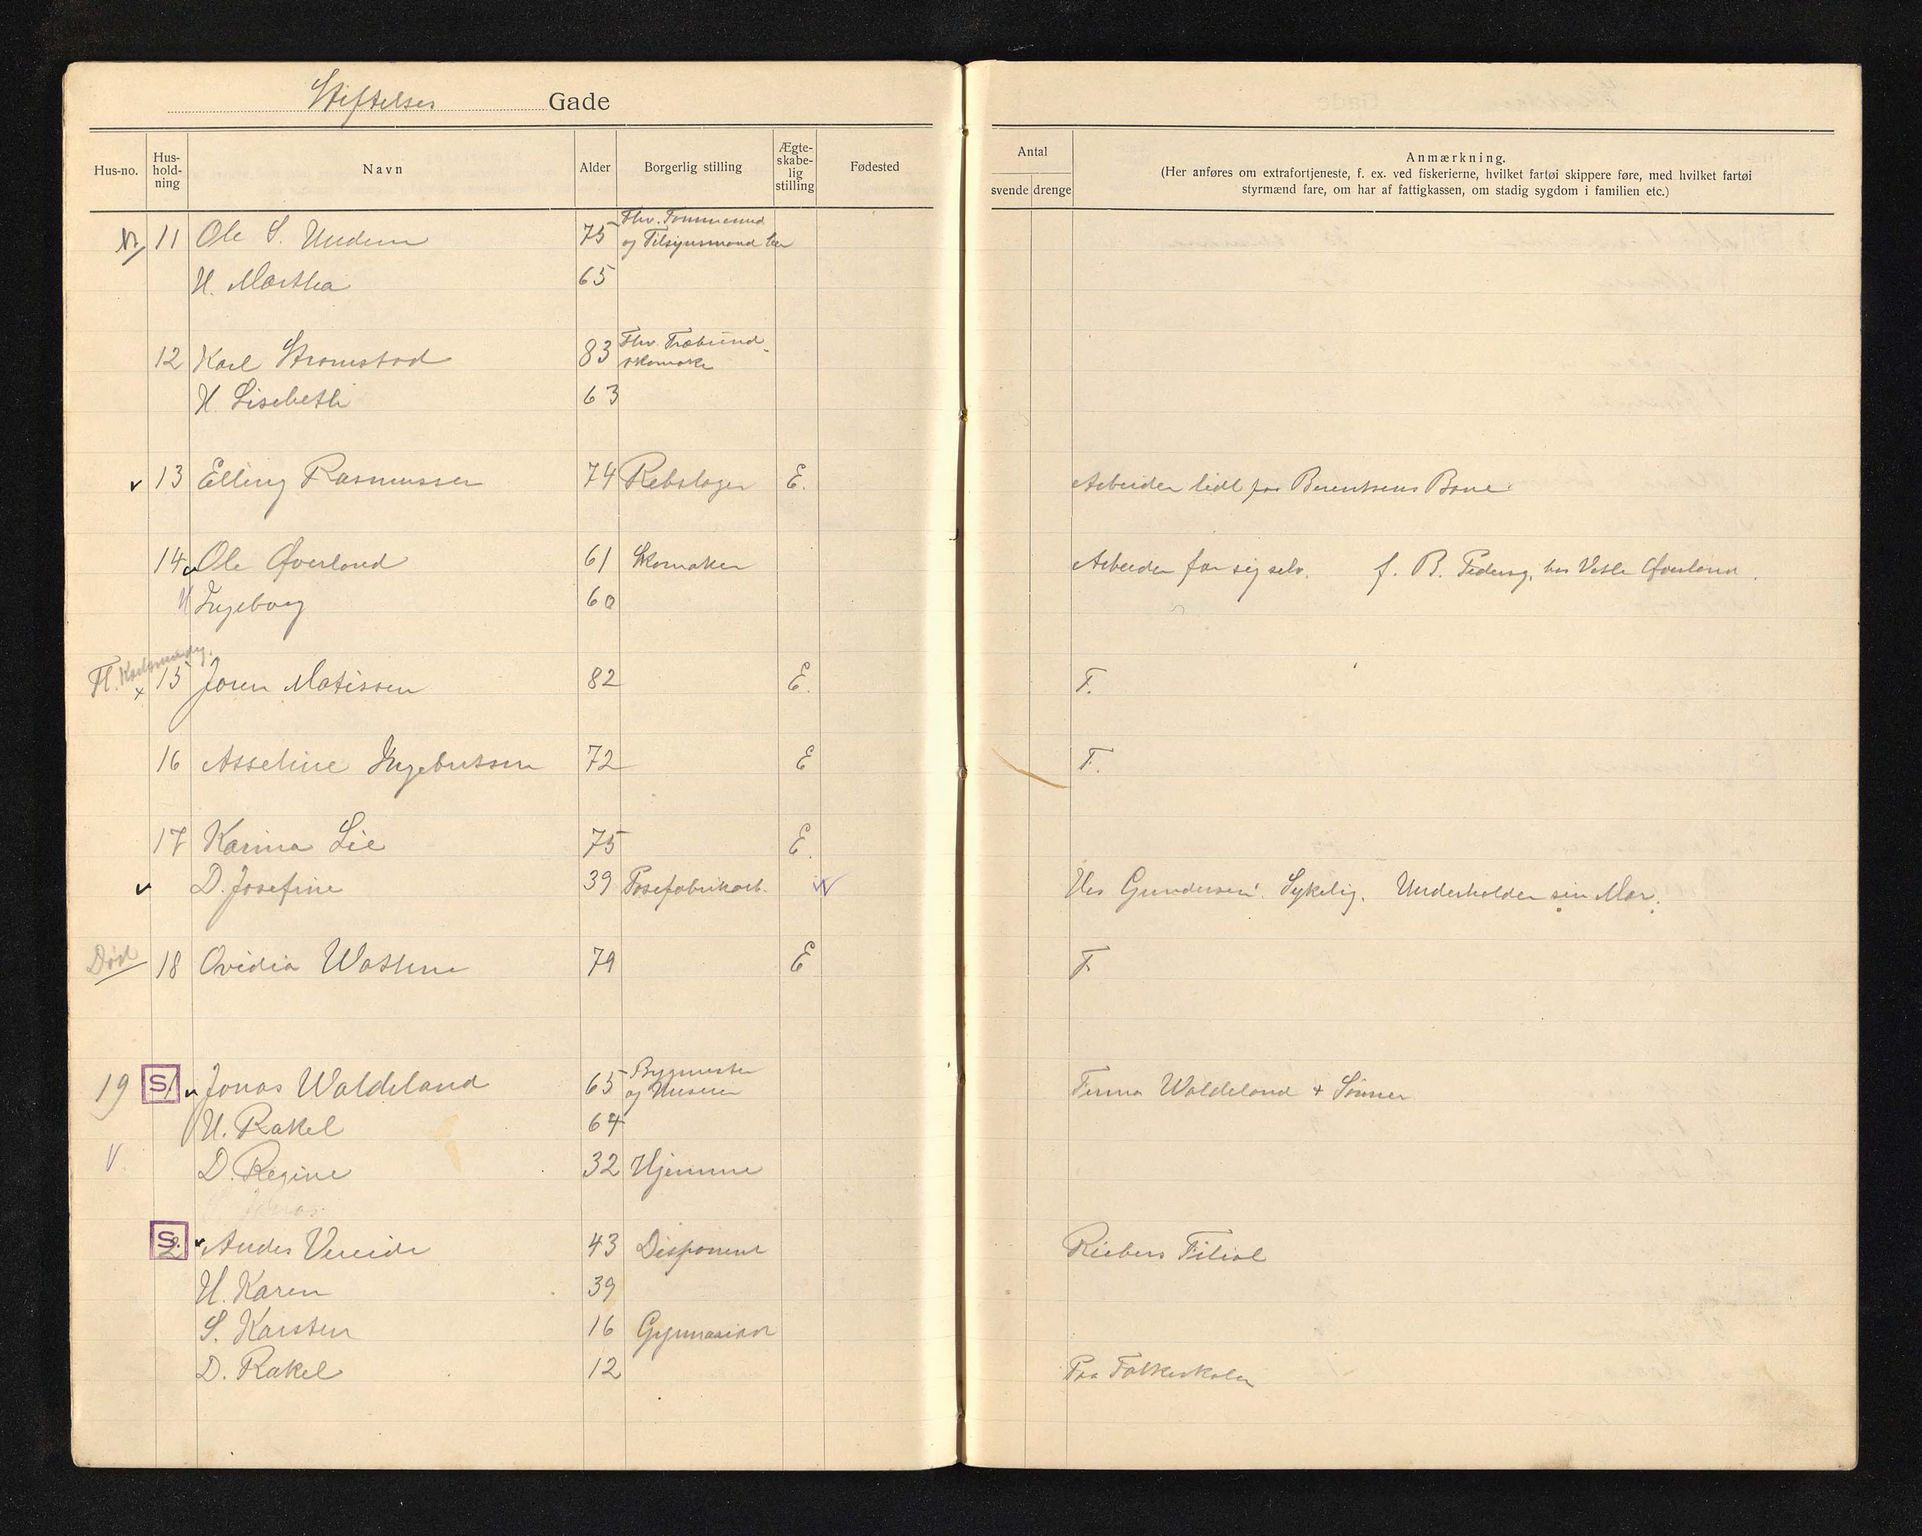 Stiftelses Gade
Hus-no. Hus-hold-ning Navn Alder Borgerlig stilling Ægte-skabe-lig stilling Fødested
Antal
svende drenge
Anmærkning.
(Her anføres om extrafortjeneste, f. ex. ved fiskerierne, hvilket fartøi skippere føre, med hvilket fartøi
styrmænd fare, om har af fattigkassen, om stadig sygdom i familien etc.)
11 Ole S. 75 Fhv. Tømmermd
og Tilsynsmand her
H. Martha 65
12 Karl Stromstad 83 Fhv. Træbund-
skomake
H. Lisebeth 63
v 13 Elling Rasmussen 74 Rebslager E. Arbeider lidt for Berentsens Bane
14 v Ole Øverland 61 Skomaker Arbeider for sig selv. f. B. Pedersg. hos Øverland.
H Ingeborg 60
Fl.
x 15 Joren Matissen 82 E. F.
16 Asseline Ingebretsen 72 E F.
17 Karina Lie 75 E.
v D. Josefine 39 Posefabrikarb. Hos Gundersen. Sykelig. Underholder sin Mor.
Død 18 Ovidia 79 E F
19 S. 1 v Jonas Waldeland 65 Bygmester
og Huseier Firma Waldeland + Sønner
H. Rakel 64
V D. Regine 32 Hjemme
Jonas
S. 2 v Andes Vereide 43 Disponent Riebers Filial
H. Karen 39
S. Karsten 16 Gymnasiast
D. Rakel 12 Paa Folkeskolen